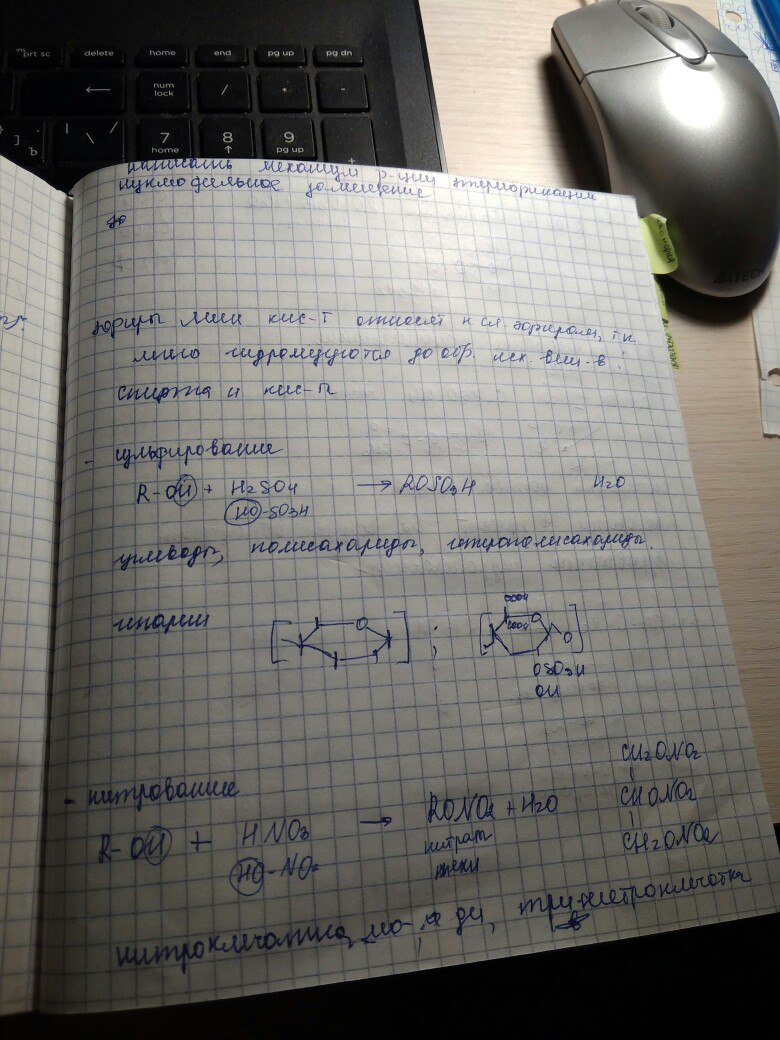 prt sc delete home end pg up pg dn
← num lock / * -
] Ъ \ 7 home 8 ↑ 9 pg up +
написать механизм р-ции этерификации
нуклеофильное замещение
эфиры мин кис-т относят к сл. эфирам, т к
гидролизуются до обр. исх. вещ-в:
спирта и кис-ты
- сульфирование
R-OH + H2SO4 → ROSO3H H2O
HO-SO3H
углеводы, полисахариды, гетрополисахариды.
гепарин [ O ] ; [ COOH COOH O O ]
OSO3H
OH
- нитрование
R-OH + HNO3 → RONO2 + H2O
HO-NO2 нитрат
CH2ONO2
CHONO2
CH2ONO2
нитроклечатка, мо-, ди, три-
A4TECH